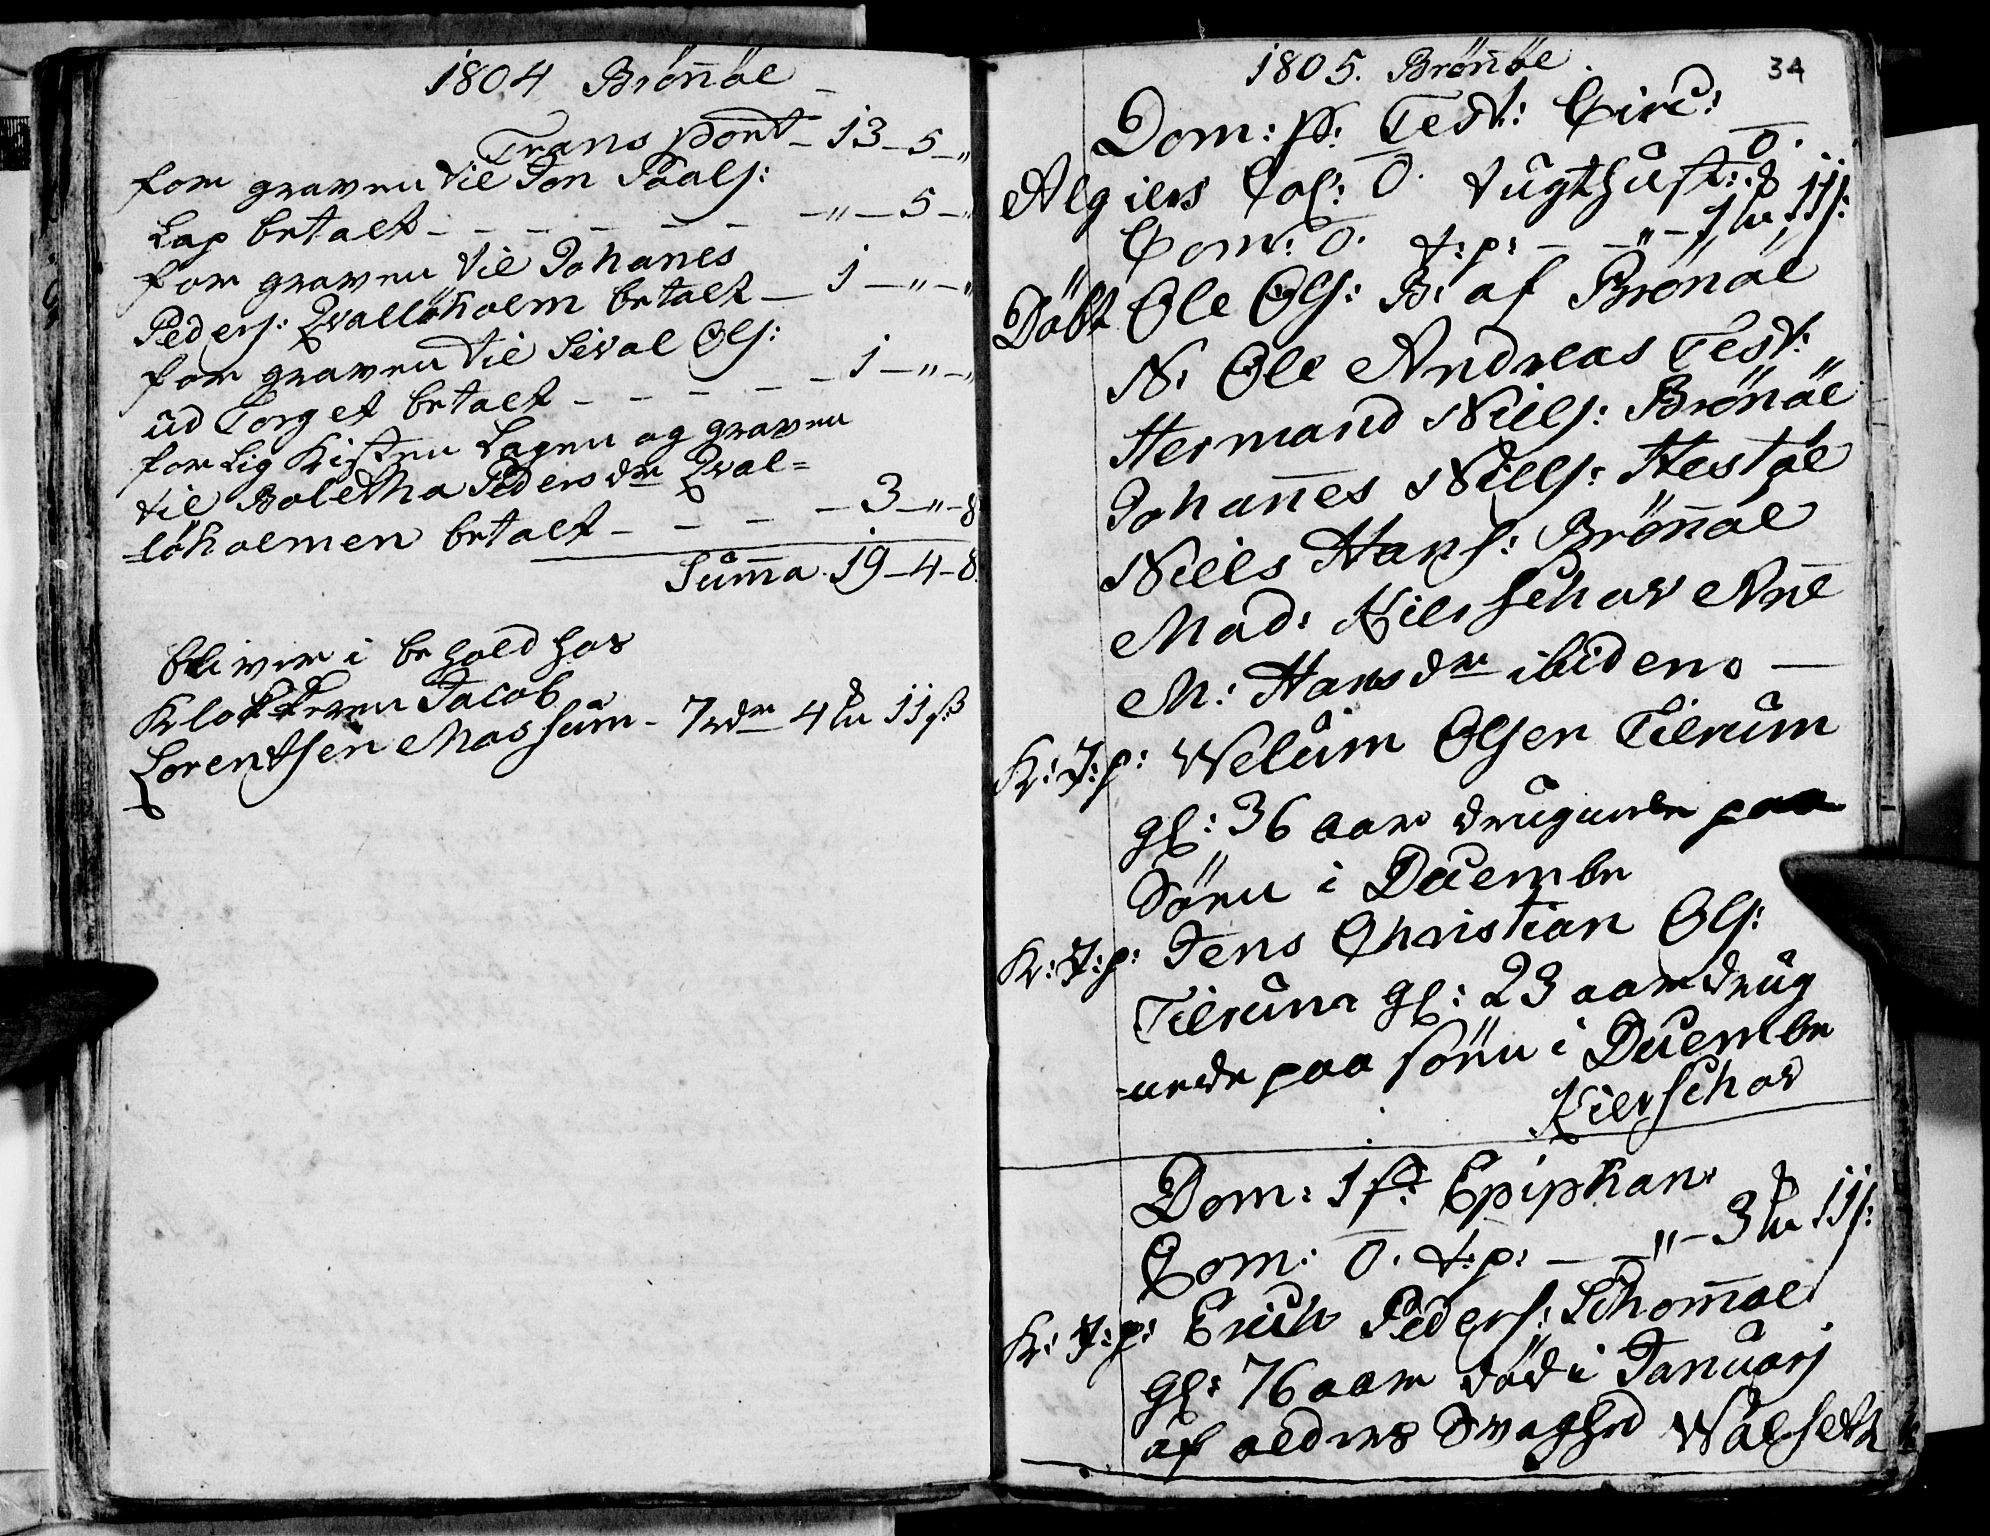 1804 Brönöe
Transport - 13 - 5 - "
for graven til Jon Paals:
Lap betalt - - - - - - - " - 5 - "
for graven til Johanes
Peders: Qvalløholm betalt - 1 - " - "
for graven til Sival Ols:
ud Torget betalt - - - - - 1 - " - "
for Lig Kisten Lagen og graven
til Boletha Pedersdr Qval=
-löholmen betalt - - - - 3 - " - 8
Suma 19 - 4 - 8
bliver i behold hos
Klokkeren Jacob
Lorentsen Massum - 7rdr 4 11 s
1805. Brönöe. 34
Dom: p: Fest: Circ:
Algiers Col: 0. Tugthust: 0.
Com: 0. t:p: - - " - 1 11 s:
Döbt Ole Ols: B: af Brönöe
N: Ole Andreas Test:
Hermand Niels: Brönöe
Johanes Niels: Hestöe
Niels Hans: Brönöe
Mad: Kierschov Ane
M: Hansdr ibidem -
K: J: p: Welum Olsen Tilrum
gl: 36 aar drugnede paa
Söen i Decembr
K: J: p: Jens Christian Ols:
Tilrum gl: 23 aar drug
-nede paa söen i Decembr
Kierschov
Dom: 1 p: Epiphan:
Com: 0. t:p: - - " - 3 11 s:
K: J: p: Erich Peders: Schomoe
gl: 76 aar död i Januarj
af alders Svaghed Walseth